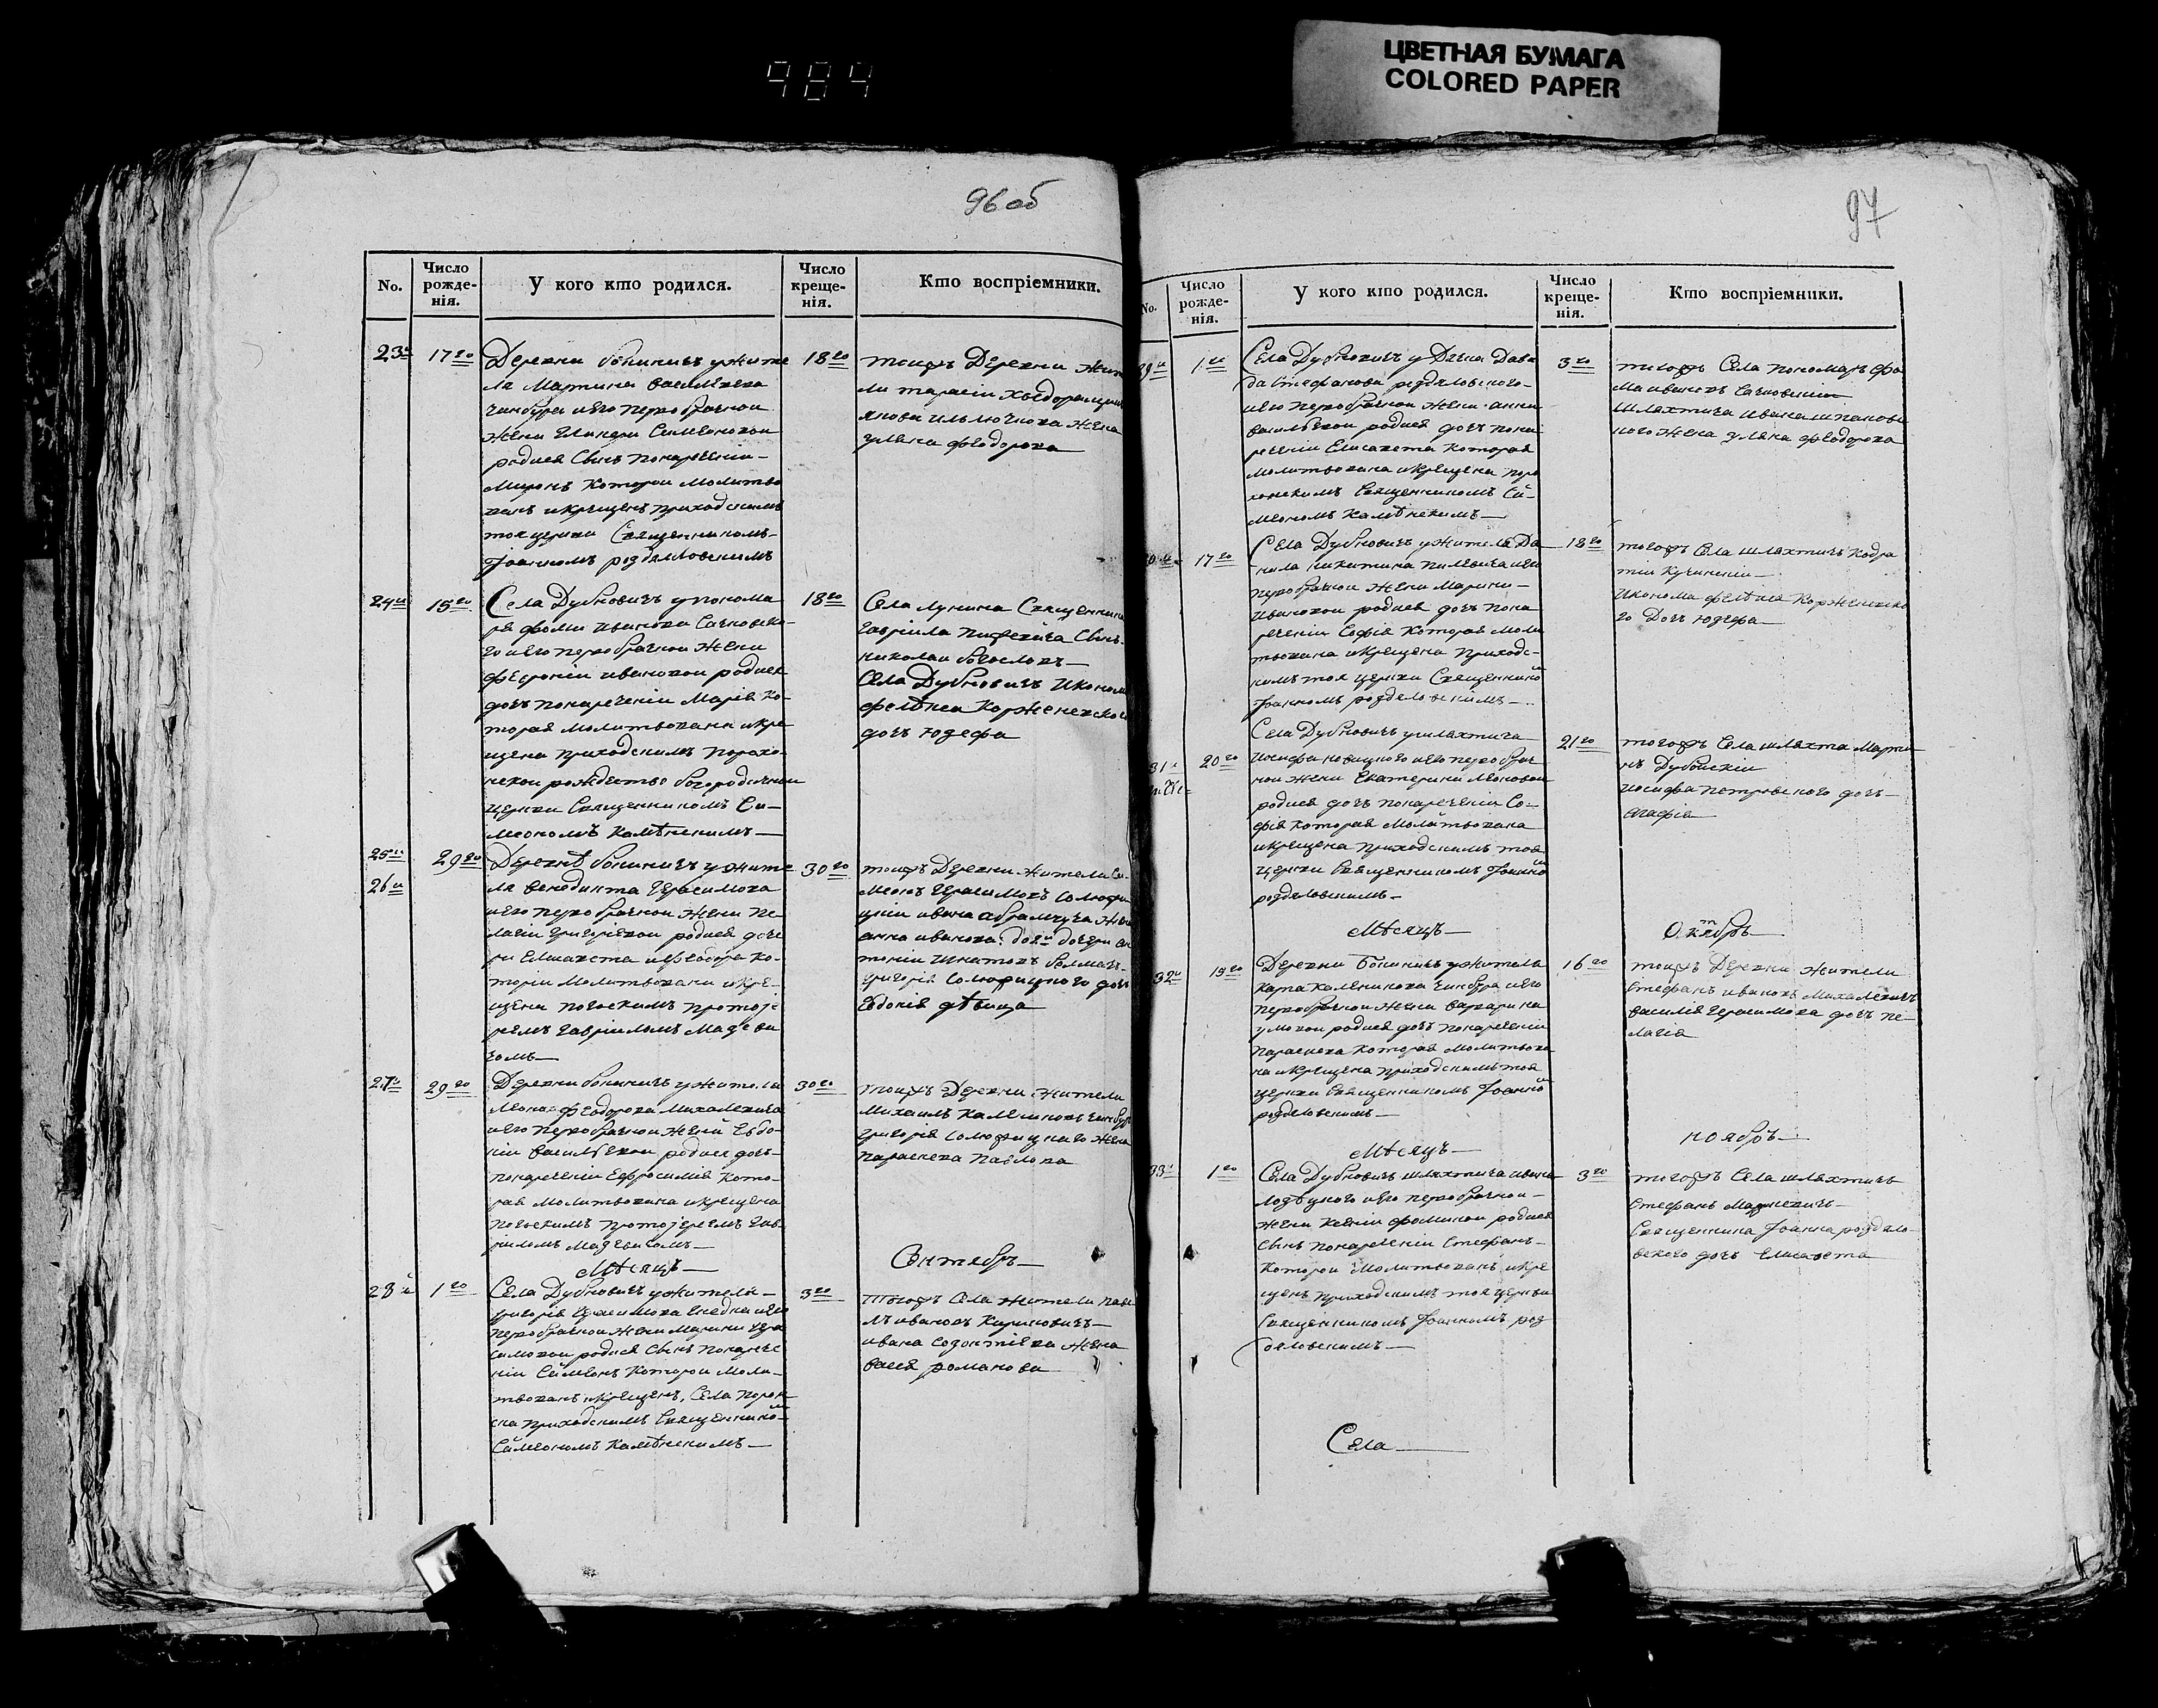 984
ЦВЕТНАЯ БУМАГА
COLORED PAPER
96 об
No.
Число рожде-нія.
У кого кто родился.
Число креще-нія.
Кто воспріемники.
23й
17го
Деревни Бокиничъ у жите
ля Мартина Васильева
его первобрачной
жены Гликери Симеоновой
родися Сынъ понареченіи
Миронъ которой молитво
ванъ икрещенъ приходскимъ
тоя церкви Священникомъ
Іоанномъ роздяловскимъ
18го
тоижъ Деревни жит
ли тарасіи
жена
уляна феодорова
24й
15го
Села Дубновичъ у понома
ря фомы иванова Сачковско
го иего первобрачной жены
ивановой родися
дочъ понареченіи Марія ко
торая молитвована икре
щена приходскимъ порохо
нскои рождество богородичнои
церкви Священникомъ Си
меономъ Каменскимъ
18го
Села Лунина Священника
гавріила Сынъ
николаи богословъ
Села Дубновичъ Иконома
Корженевского
дочъ юзефа
25й
26й
29го
Деревнѣ Бокиничъ у жите
ля венедикта Герасимова
иего первобрачной жены пе
лагіи григоріевой родися доче
ри Елисавета ифеодора ко
торіи молитвовани икре
щены погоскимъ протоіе
реемъ гавріиломъ Мадзеви
чомъ
30го
тоижъ Деревни жители Си
меонъ Герасимовъ
ивана абрамчука жена
анна иванова
тоніи Игнатовъ
григорія дочъ
Евдокія дѣвица
27й
29го
Деревни Бокиничъ у жителя
Леона феодорова михалевича
иего первобрачной жены Евдо
кіи василѣвой родися дочъ
понареченіи Ефросимія кото
рая молитвована икрещена
погоскимъ протоіереемъ гав
ріиломъ Мадзевичомъ
30го
тоижъ Деревни жители
Михаилъ Калениковъ
григорія жена
параскева павлова
Мѣсяцъ
Сентябръ
28й
1го
Села Дубновичъ у жителя
григорія Герасимова иего
первобрачной жены Марини Гера
симовой родися Сынъ понарече
ніи Симеонъ которои моли
твованъ икрещенъ, Села порох
ска приходскимъ Священнико
Симеономъ Каменскимъ
3го
тогожъ Села жители паве
лъ ивановъ Кариковичъ
ивана жена
васса романова
97
No.
Число рожде-нія.
У кого кто родился.
Число креще-нія.
Кто воспріемники.
29й
1го
Села Дубновичъ у Дячка Дави
да Стефанова роздяловского
иего первобрачной жены анны
василѣвой родися дочъ пона
реченіи Елисавета которая
молитвована икрещена поро
хонскимъ Священникомъ Си
меономъ Каменскимъ
3го
тогожъ Села пономаръ фо
ма ивановъ Сачковскіи
шляхтича ивана шпаковс
кого жена уляна феодорова
30й
17го
Села Дубновичъ у жителя Да
нила никитина иего
первобрачной жены Марины
ивановой родися дочъ пона
реченіи Софія которая моли
твована икрещена приходс
кимъ тоя церкви Священнико
Іоанномъ роздяловскимъ
18го
тогожъ Села шляхтичъ Кодра
тіи Кучинскіи
Иконома Корженевско
го Дочъ юзефа
31й
20го
Села Дубновичъ у шляхтича
иосифа новицкого иего первобрач
ной жены Екатерины Леоновой
родися дочъ понареченіи Со
фія которая молитвована
икрещена приходскимъ тоя
церкви Священникомъ Іоанно
роздяловскимъ
21го
тогожъ Села шляхта Марти
нъ Дубойскіи
иосифа петровского дочъ
агафія
Мѣсяцъ
Октябръ
32й
15го
Деревни Бокиничъ у жителя
Карпа Каленикова иего
первобрачной жены варвари на
умовой родися дочъ понареченіи
параскева которая молитвова
на икрещена приходскимъ тоя
церкви Священникомъ Іоанно
роздяловскимъ
16го
тоижъ Деревни жители
Стефанъ ивановъ Михалевичъ
василія Герасимова дочъ пе
лагія
Мѣсяцъ
ноябръ
33й
1го
Села Дубновичъ шляхтича ивана
иего первобрачной
жены Ксеніи фоминой родися
Сынъ понареченіи Стефанъ
которои молитвованъ икре
щенъ приходскимъ тоя церкви
Священникомъ Іоанномъ роз
дяловскимъ
3го
тогожъ Села шляхтичъ
Стефанъ
Священника Іоанна роздяло
вского дочъ Елисавета
Села